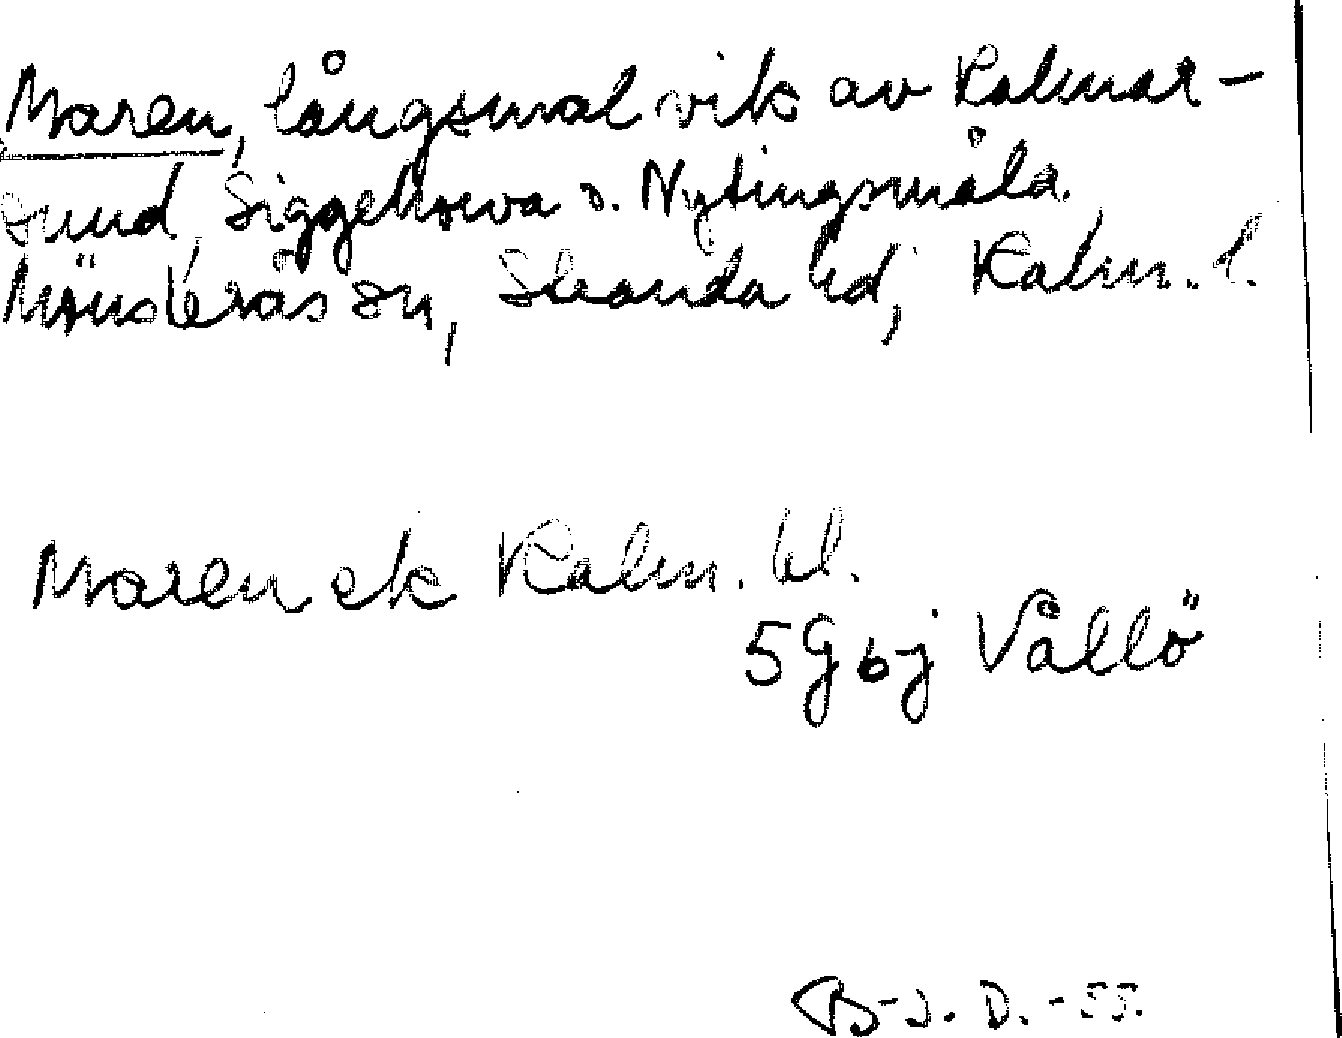 Maren, långsmal vik av Kalmar-
sund, Siggehorva o. Nytingsmåla.
Mönsterås sn, Stranda hd, Kalm. l.
Maren ek Kalm. bl.
5G6j Vållö
B-J. D. -55.